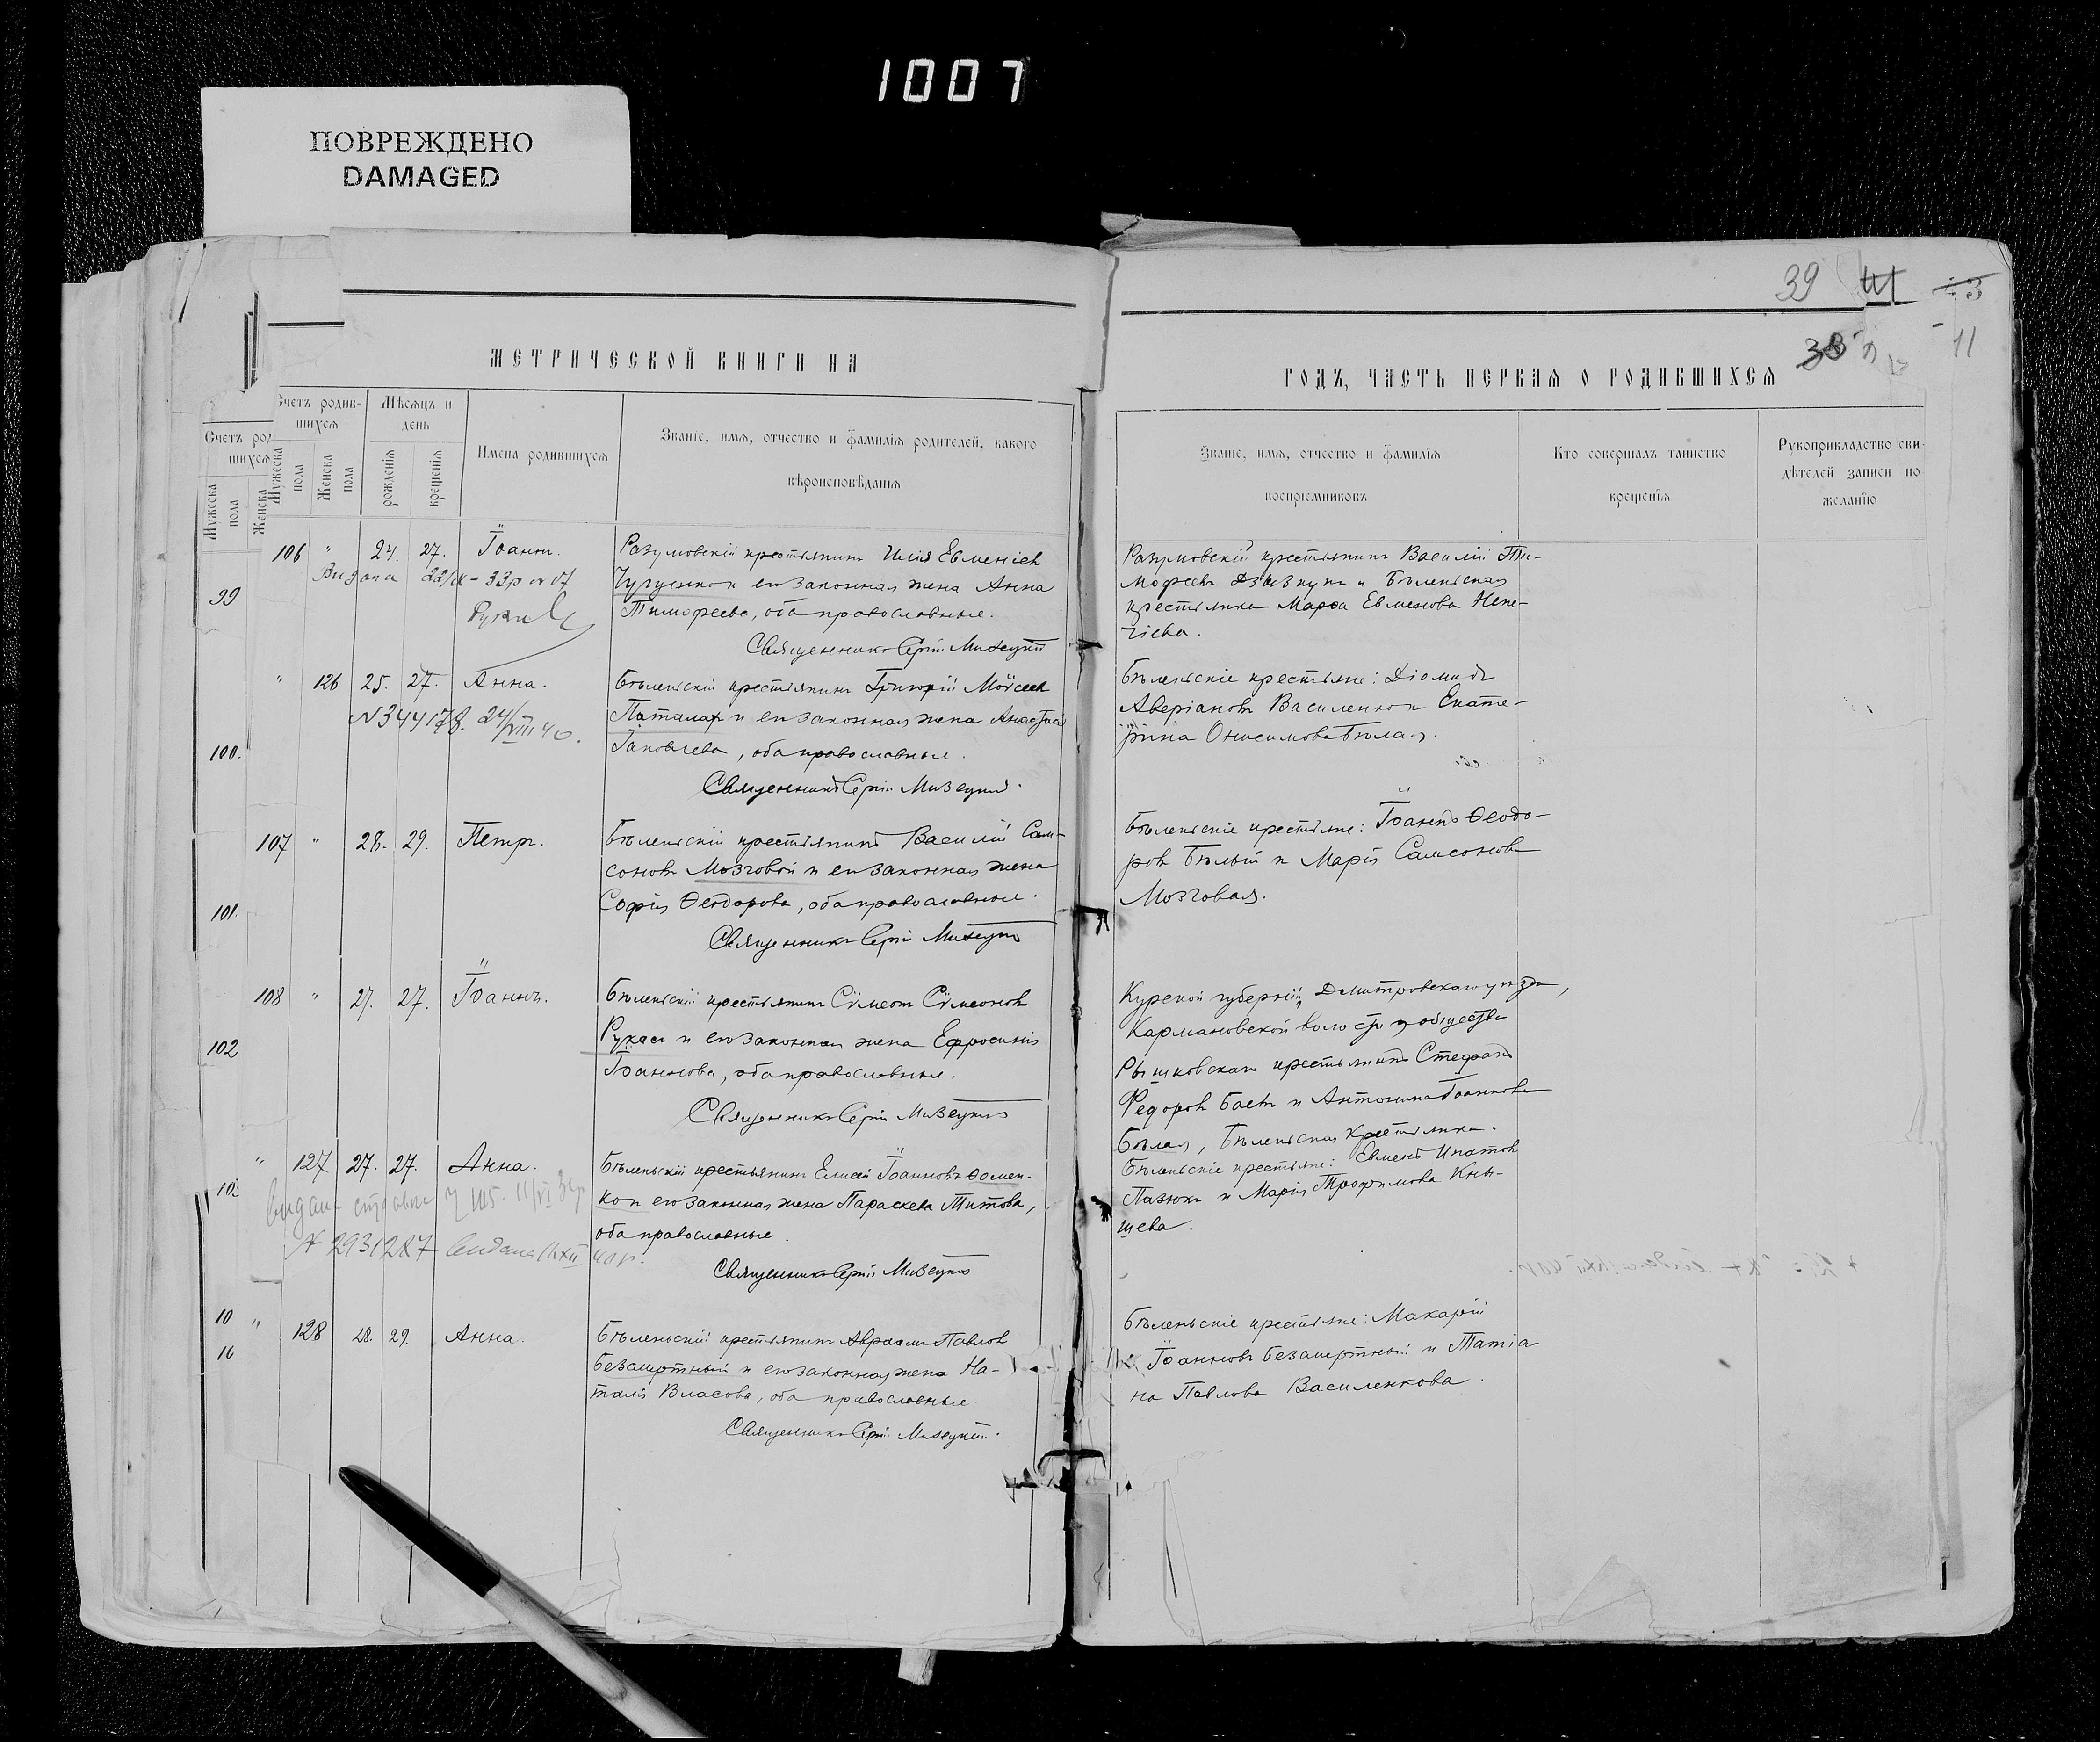 1007
ПОВРЕЖДЕНО
DAMAGED
39
38
11
МЕТРИЧЕСКОЙ КНИГИ НА
ГОДЪ, ЧАСТЬ ПЕРВАЯ О РОДИВШИХСЯ
Счетъ родив-
шихся
Мужеска пола
Женска пола
Мѣсяцъ и
день
рожденія
крещенія
Имена родившихся
Званіе, имя, отчество и фамилія родителей, какого
вѣроисповѣданія
Званіе, имя, отчество и фамилія
воспріемниковъ
Кто совершалъ таинство
крещенія
Рукоприкладство сви-
дѣтелей записи по
желанію
Счетъ род
шихся
Мужеска
пола
Женска
99
100.
101.
102
103
10
10
106 " 24. 27. Іоаннъ.
Видана
Разумовскій крестьянинъ Илія Евменіев
и его законная жена Анна
Тимофеева, оба православные.
Священникъ Сергій Мизецкій
Разумовскій крестьянинъ Василій Ти-
мофеевъ и Бѣленьская
крестьянка Марѳа Евменова Непе-
чіева.
" 126 25. 27. Анна.
N 344178. 24/VIII 40.
Бѣленьскій крестьянинъ Григорій Моѵсеев
Паталах и его законная жена Анастасія
Іаковлева, оба православные.
Священникъ Сергій Мизецкій.
Бѣленьскіе крестьяне: Діомидъ
Аверіановъ Василенко и Екате-
рина Онисимова Бѣлая.
107 " 28. 29. Петръ.
Бѣленьскій крестьянинъ Василій Сам-
соновъ Мозговой и его законная жена
Софія Ѳеодорова, оба православные.
Священникъ Сергій Мизецкій
Бѣленьскіе крестьяне: Іоаннъ Ѳеодо-
ровъ Бѣлый и Марія Самсонова
Мозговая.
108 " 27. 27. Іоаннъ.
Бѣленьскій крестьянинъ Сѵмеонъ Сѵмеоновъ
Рукас и его законная жена Ефросинія
Іоаннова, оба православные.
Священникъ Сергій Мизецкій
Курской губерніи, Дмитровскаго уѣзда,
Кармановской волости, общества
Рышковскаго крестьянинъ Стефанъ
Федоровъ Баевъ и Антонина Іоаннова
Бѣлая, Бѣленьская крестьянка.
" 127 27. 27. Анна.
N 2931287 видана
Бѣленьскій крестьянинъ Елисей Іоанновъ Ѳомен-
ко и его законная жена Параскева Титова,
оба православные.
Священникъ Сергій Мизецкій
Бѣленьскіе крестьяне: Евменъ Ипатов
Пазюкъ и Марія Трофимова Кны-
шева.
" 128 28. 29. Анна.
Бѣленьскій крестьянинъ Авраамъ Павлов
Безсмертный и его законная жена На-
талія Власова, оба православные.
Священникъ Сергій Мизецкій.
Бѣленьскіе крестьяне: Макарій
Іоанновъ Безсмертный и Татіа-
на Павлова Василенкова.